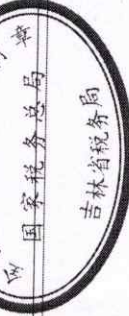 国家税务总局
吉林省税务局